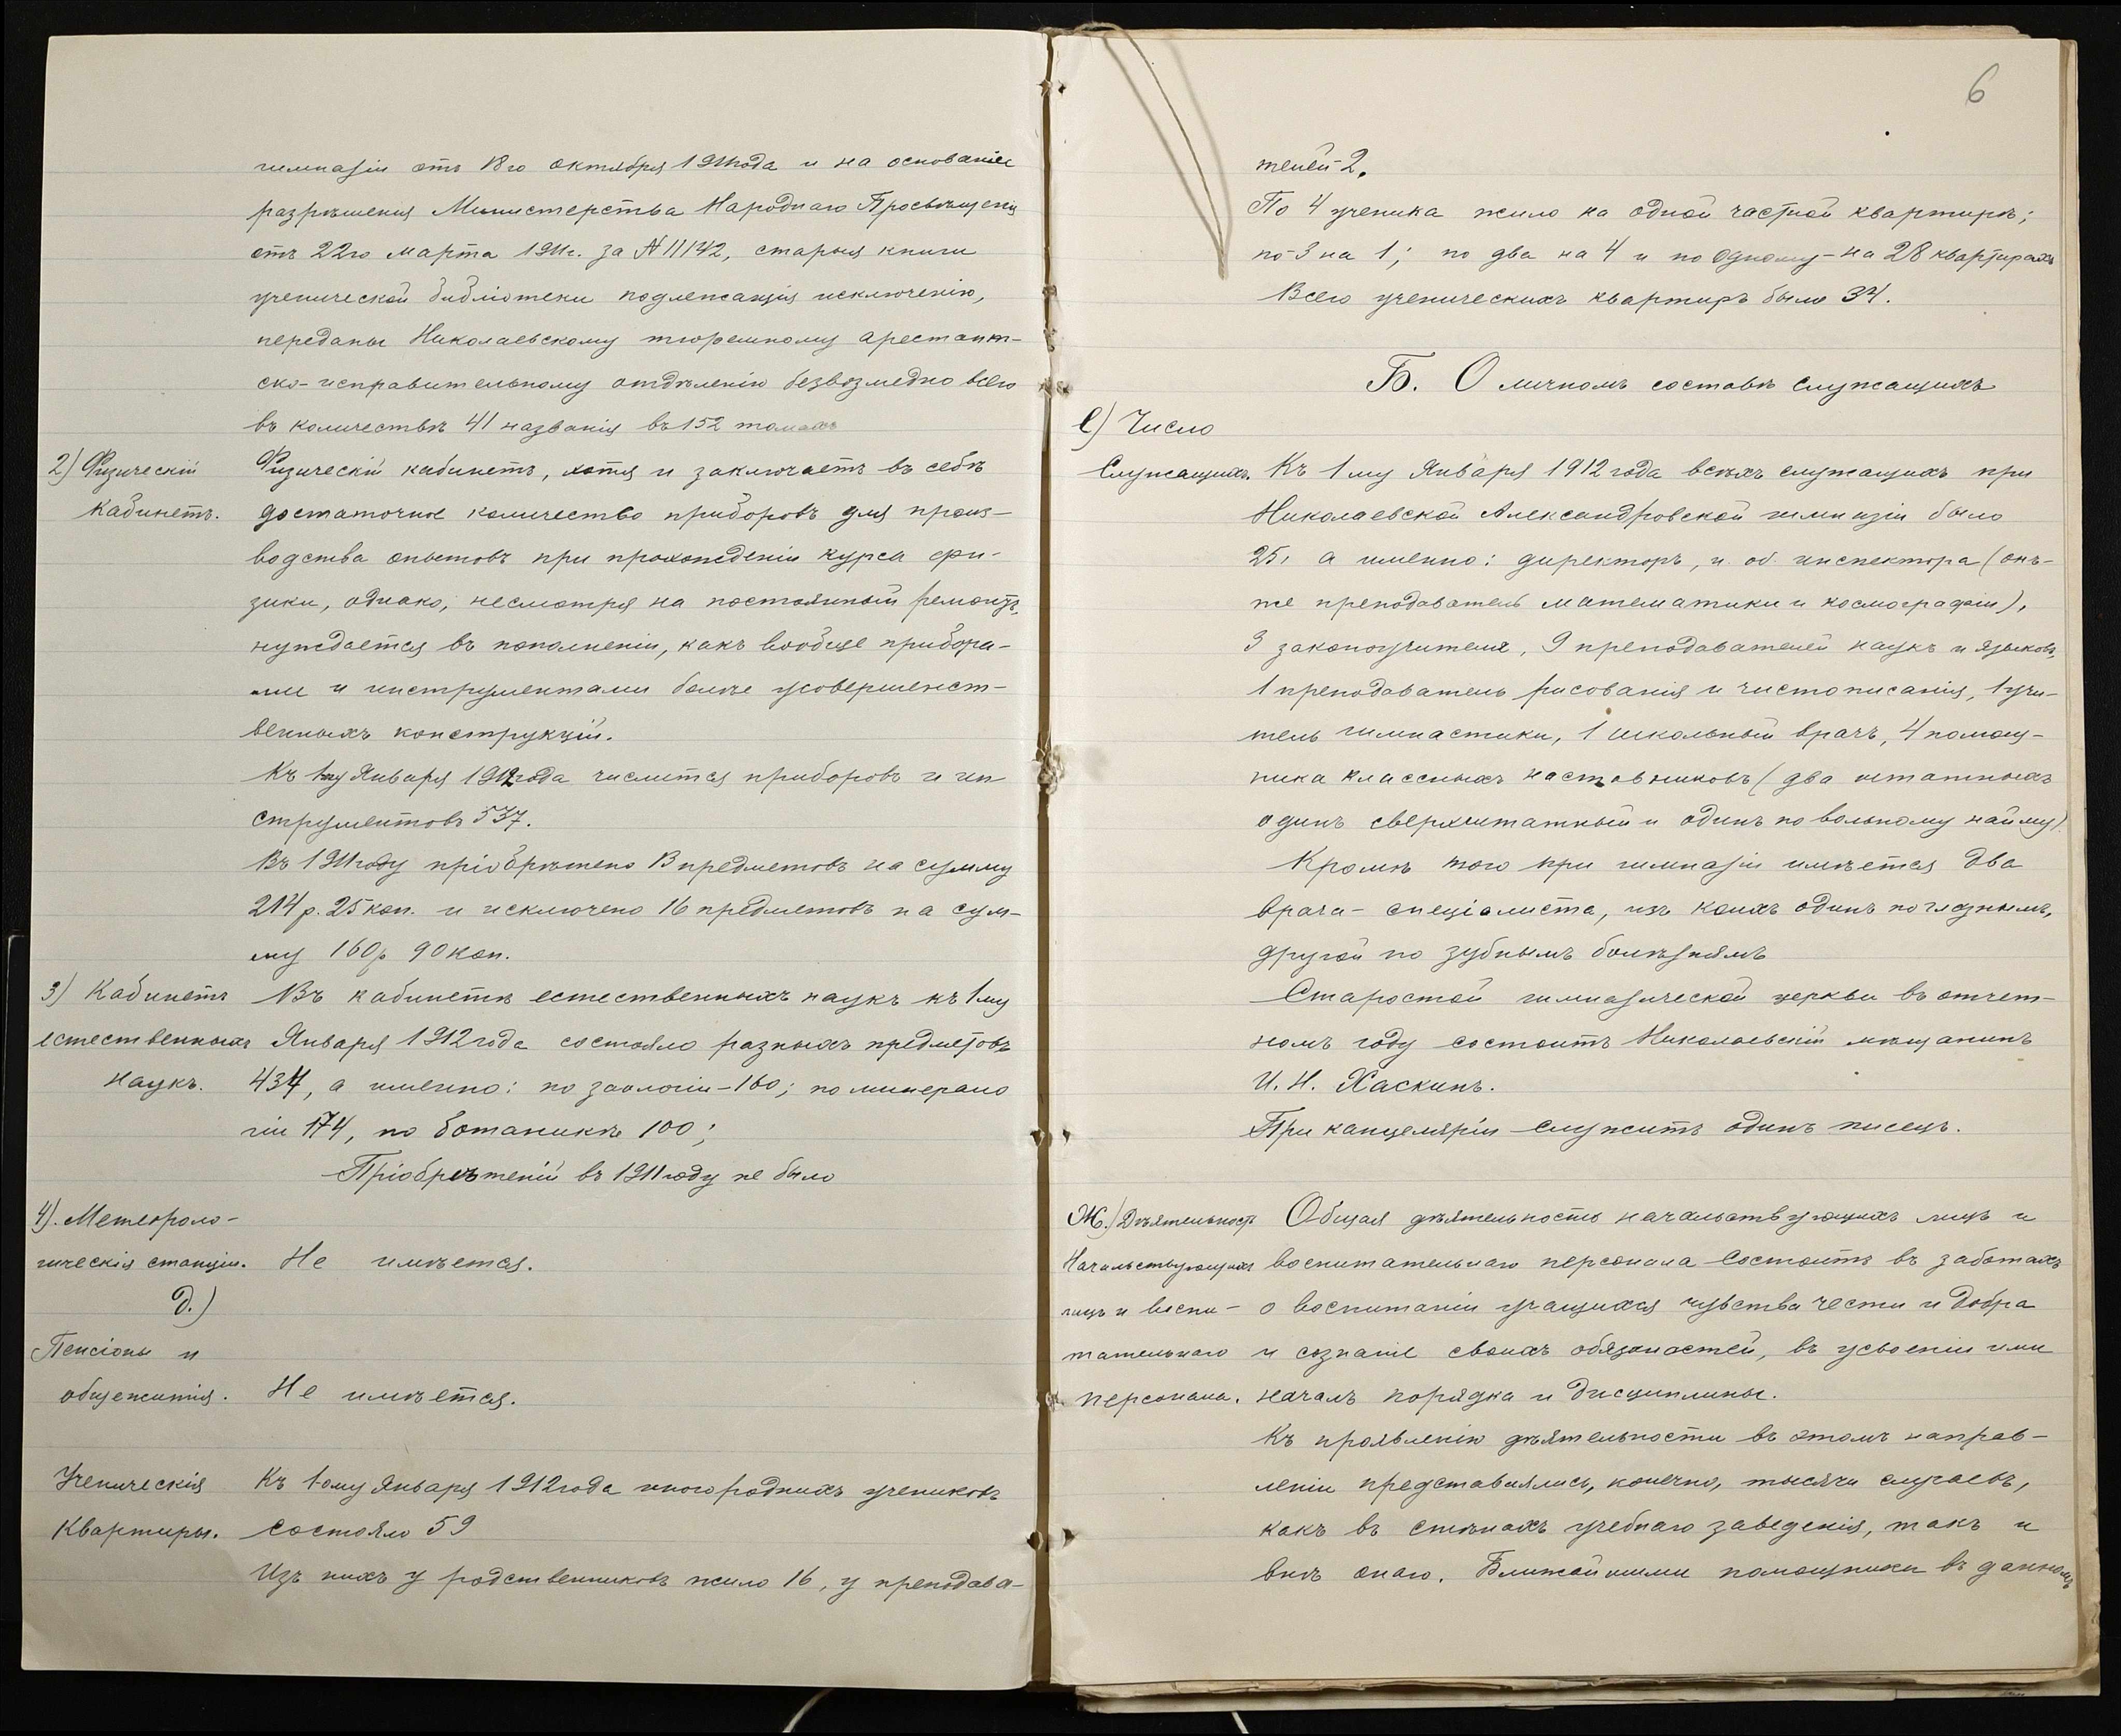 гимназіи отъ 18го октября 1911 года и на основаніи
разрѣшенія Министерства Народнаго Просвѣщенія
отъ 22го марта 1911г. за № 11142, старыя книги
ученической библіотеки подлежащія исключенію,
переданы Николаевскому тюремному арестант-
ско-исправительному отдѣленію безвозмедно всего
въ количествѣ 41 названія въ 152 томахъ
2) Физическій Физическій кабинетъ, хотя и заключаетъ въ себѣ
Кабинетъ. достаточное количество приборовъ для произ-
водства опытовъ при прохожденіи курса фи-
зики, однако, несмотря на постоянный ремонтъ,
нуждается въ пополненіи, какъ вообще прибора-
ми и инструментами более усовершенст-
венныхъ конструкцій.
Къ 1му Января 1912 года числится приборовъ и ин
струментовъ 537.
Въ 1911 году пріобрѣтено 13 предметовъ на сумму
214 р. 25 коп. и исключено 16 предметовъ на сум-
му 160р 90 коп.
3) Кабинетъ Въ кабинетѣ естественныхъ наукъ къ 1му
естественныхъ Января 1912 года состояло разныхъ предметовъ
Наукъ. 434, а именно: по заологіи-160; по минерало
гіи 174, по ботаникѣ 100;
Пріобрѣтеній въ 1911 году не было
4). Метеороло-
гическія станціи. Не имѣется.
д.)
Пенсіоны и
общежитія. Не имѣется.
Ученическія Къ 1-ому Января 1912 года иногородныхъ учениковъ
Квартиры. состояло 59
Изъ нихъ у родственниковъ жило 16, у преподава-
6
телей-2.
По 4 ученика жило на одной частной квартирѣ;
по-3 на 1; по два на 4 и по одному-на 28 квартирахъ
Всего ученическихъ квартиръ было 34.
Б. О личномъ составѣ служащихъ
е) Число
Служащихъ. Къ 1му Января 1912 года всѣхъ служащихъ при
Николаевской Александровской гимназіи было
25, а именно: директоръ, и. об. инспектора (онъ-
же преподаватель математики и космографіи),
3 законоучителя, 9 преподавателей наукъ и языковъ,
1 преподаватель рисованія и чистописанія, 1 учи-
тель гимнастики, 1 школьный врачъ, 4 помощ-
ника классныхъ наставниковъ (два штатныхъ
одинъ сверхштатный и одинъ по вольному найму).
Кромѣ того при гимназіи имѣется два
врача-спеціалиста, изъ коихъ одинъ по глазнымъ,
другой по зубнымъ болѣзнямъ
Старостой гимназической церкви въ отчет-
номъ году состоитъ Николаевскій мѣщанинъ
И. Н. Хаскинъ.
При канцеляріи служитъ одинъ писецъ.
Ж.) Дѣятельность Общая дѣятельность начальствующихъ лицъ и
Начальствующихъ воспитательнаго персонала состоитъ въ заботахъ
лицъ и воспи- о воспитаніи учащихся чувства чести и добра
тательнаго и сознаніе своихъ обязаностей, въ усвоеніи ими
персонала. началъ порядка и дисциплины.
Къ проявленію дѣятельности въ этомъ направ-
леніи представлялись, конечно, тысячи случаевъ,
какъ въ стѣнахъ учебнаго заведенія, такъ и
внѣ онаго. Ближайшими помощники въ данномъ